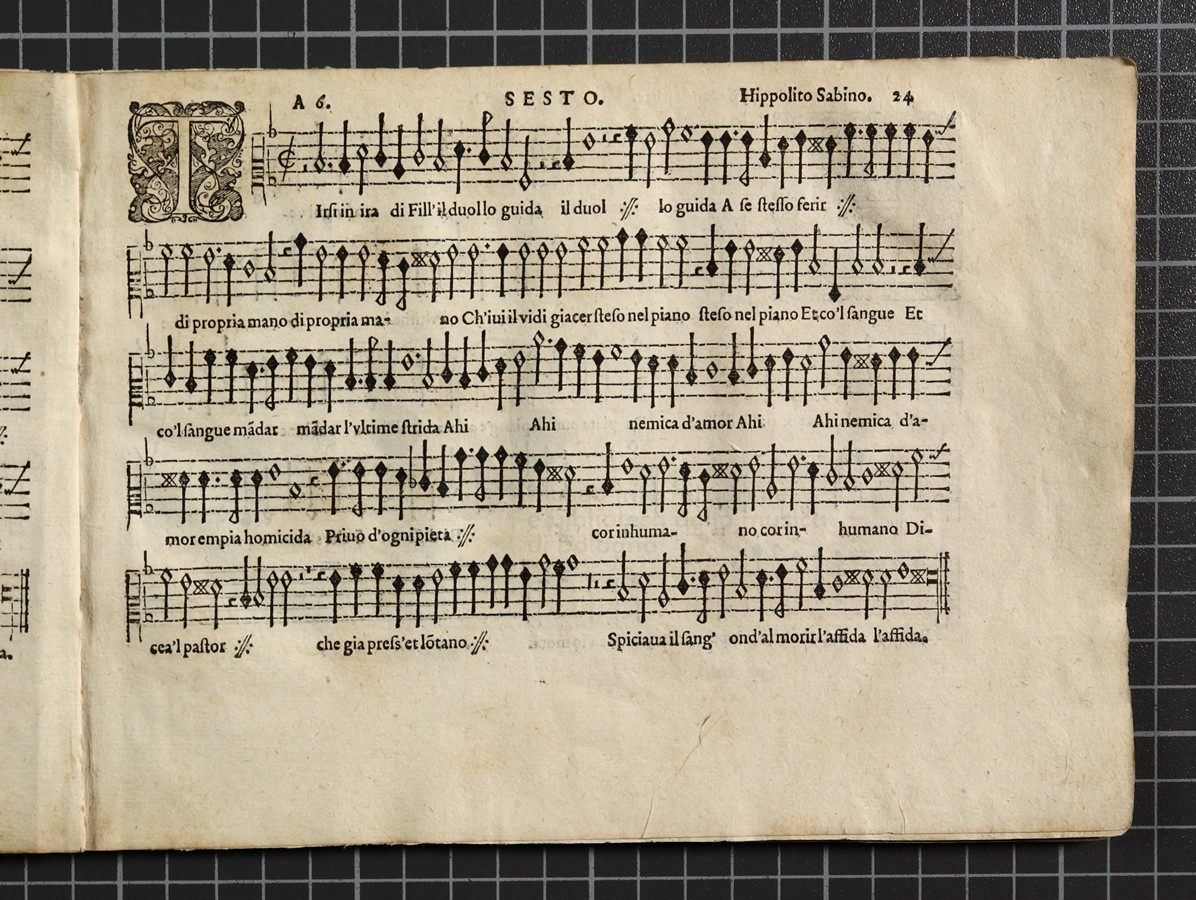 A 6. SESTO. Hippolito Sabino. 24
TIrsi in ira di Fill'il duol lo guida il duol :/: lo guida A se stesso ferir :/:
di propria mano di propria ma- no Ch'iui il vidi giacer steso nel piano steso nel piano Et co'l sangue Et
co'l sangue mãdar mãdar l'vltime strida Ahi Ahi nemica d'amor Ahi Ahi nemica d'a-
mor empia homicida Priuo d'ogni pieta :/: cor inhuma- no cor in- humano Di-
cea'l pastor :/: che gia press'et lõtano :/: Spiciaua il sang' ond'al morir l'affida l'affida.
a.